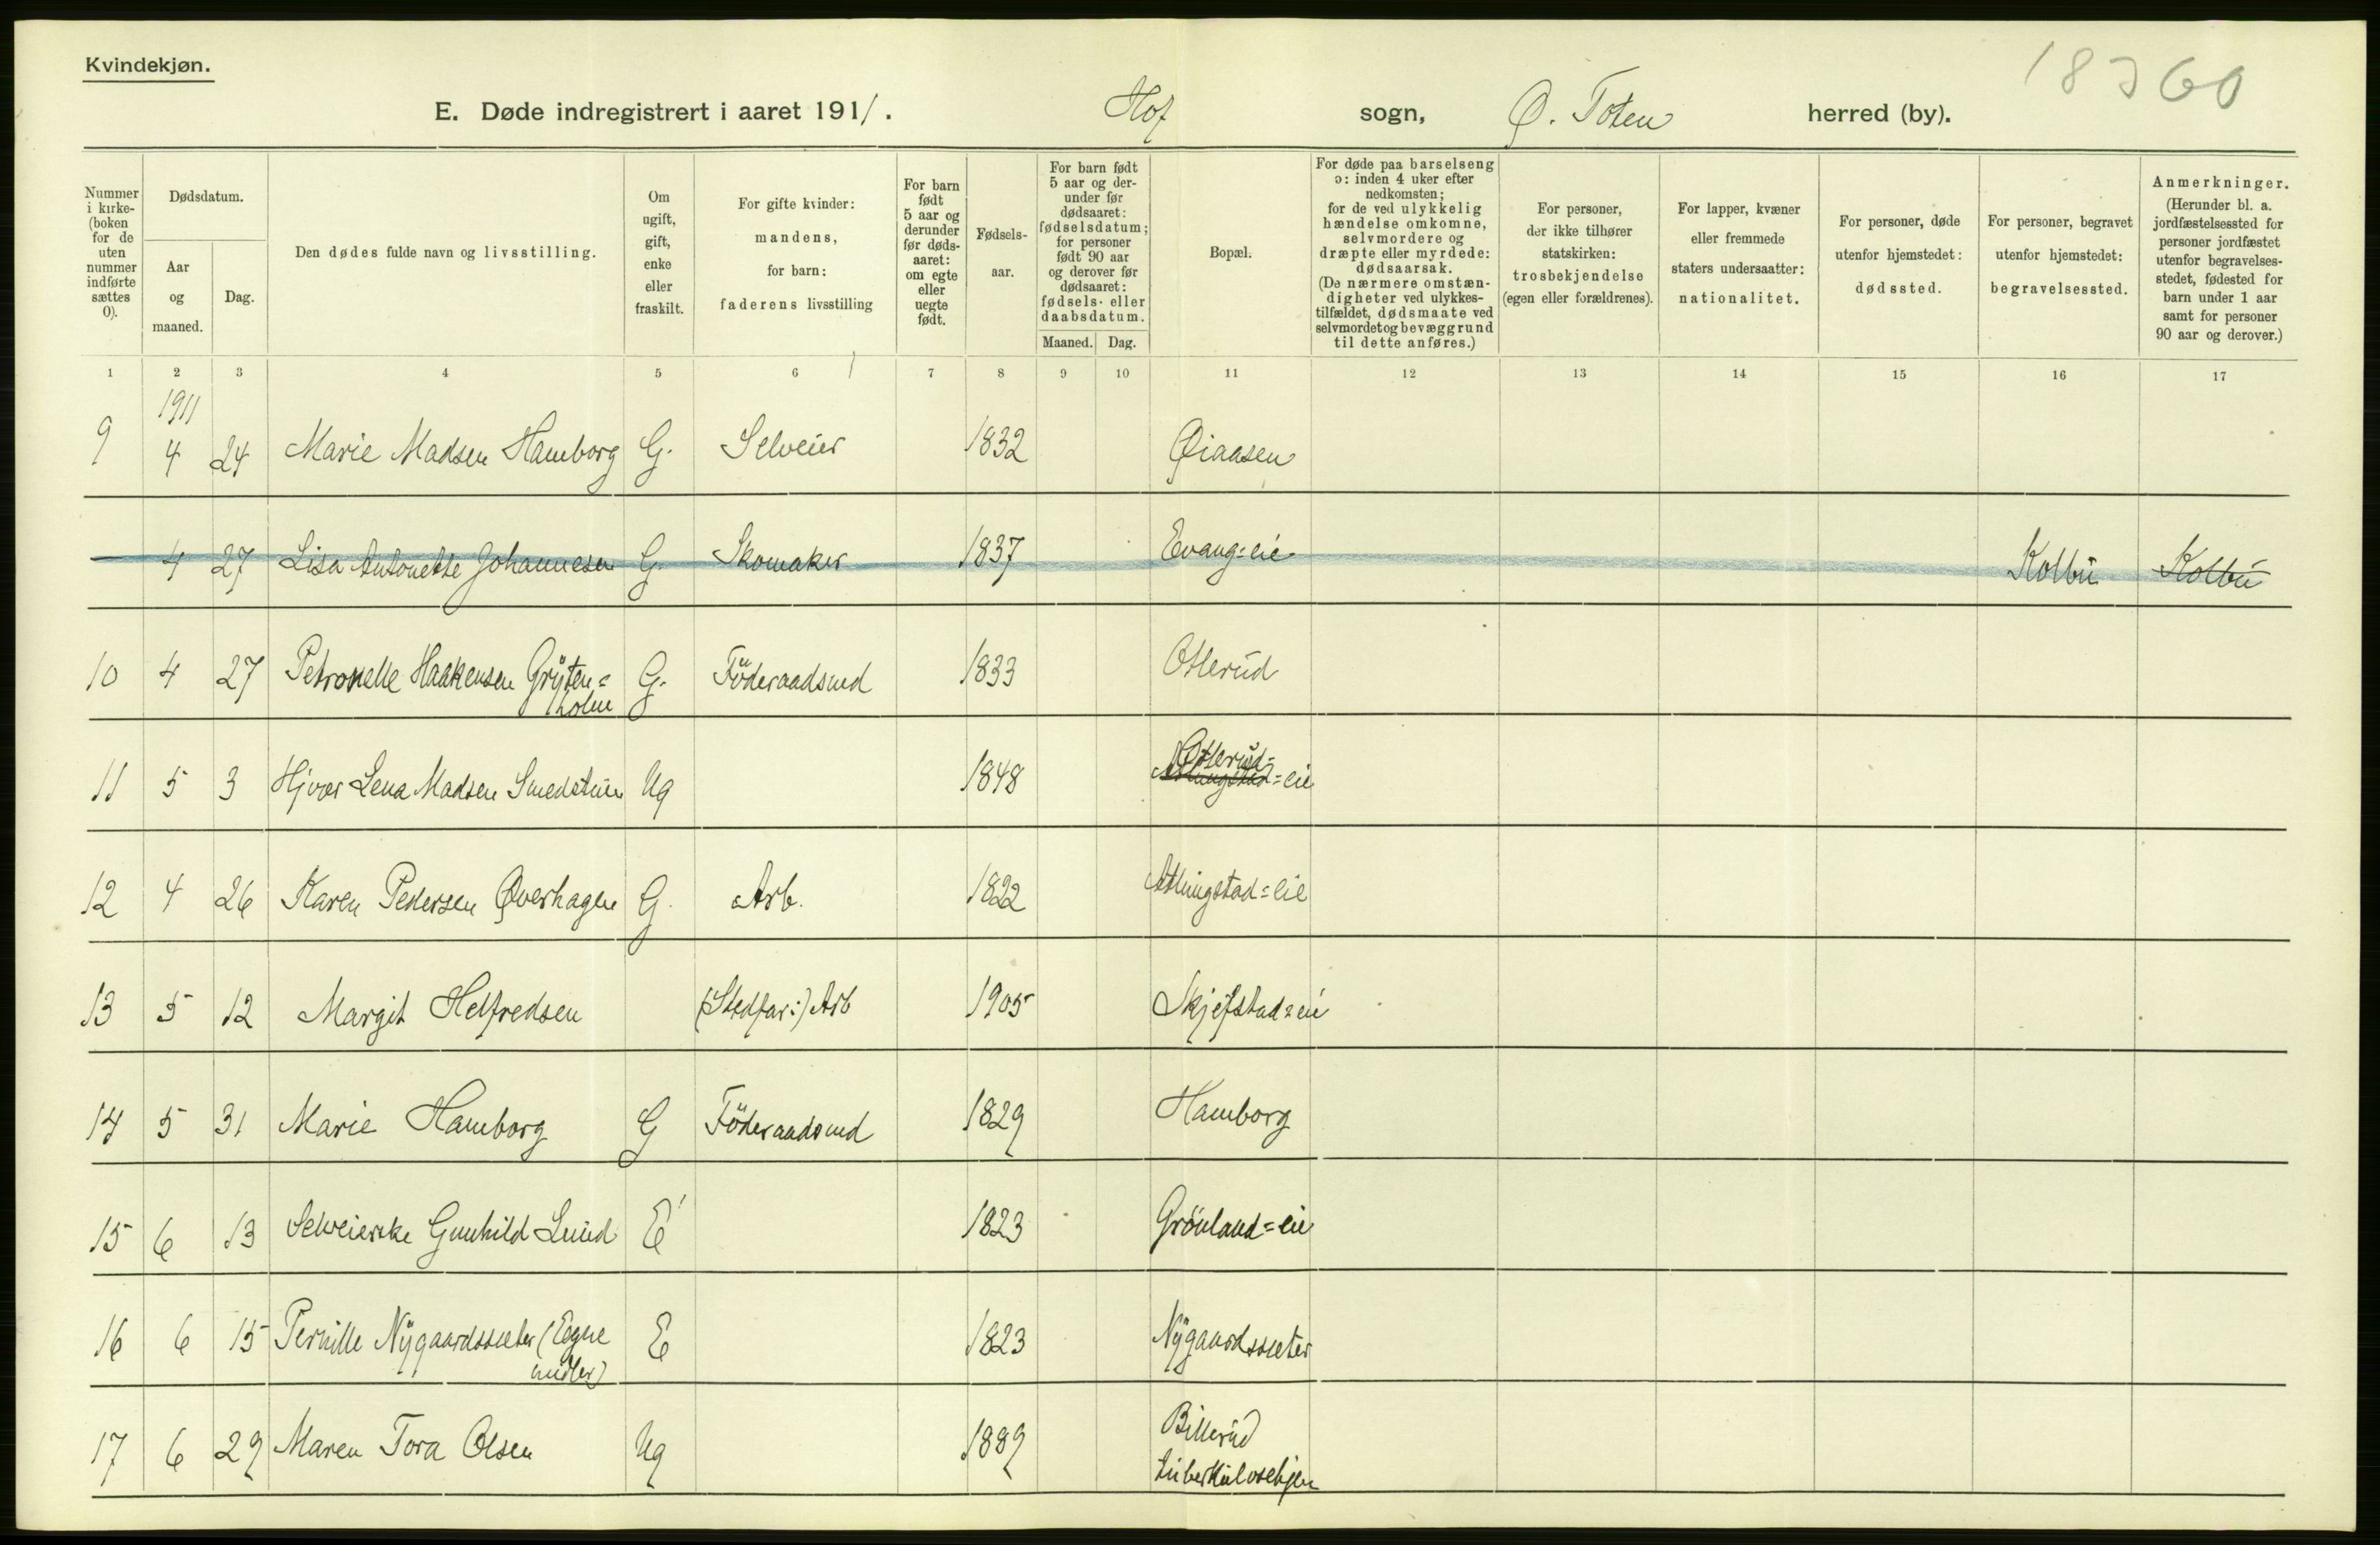 Kvindekjøn.
18360
E. Døde indregistrert i aaret 1911. Hof sogn, Ø. Toten herred (by).
Nummer i kirke-(boken for de uten nummer indførte sættes 0).
Dødsdatum.
Aar og maaned.
Dag.
Den dødes fulde navn og livsstilling.
Om ugift, gift, enke eller fraskilt.
For gifte kvinder: mandens, for barn: faderens livsstilling
For barn født 5 aar og derunder før døds-aaret: om egte eller uegte født.
Fødsels-aar.
For barn født 5 aar og der-under før dødsaaret: fødselsdatum; for personer født 90 aar og derover før dødsaaret: fødsels- eller daabsdatum.
Maaned. Dag.
Bopæl.
For døde paa barselseng ɔ: inden 4 uker efter nedkomsten; for de ved ulykkelig hændelse omkomne, selvmordere og dræpte eller myrdede: dødsaarsak. (De nærmere omstæn-digheter ved ulykkes-tilfældet, dødsmaate ved selvmord et og bevæggrund til dette anføres.)
For personer, der ikke tilhører statskirken: trosbekjendelse (egen eller forældrenes).
For lapper, kvæner eller fremmede staters undersaatter: nationalitet.
For personer, døde utenfor hjemstedet: dødssted.
For personer, begravet utenfor hjemstedet: begravelsessted.
Anmerkninger. (Herunder bl. a. jordfæstelsessted for personer jordfæstet utenfor begravelses-stedet, fødested for barn under 1 aar samt for personer 90 aar og derover.)
1 2 3 4 5 6 7 8 9 10 11 12 13 14 15 16 17
1911
9 4 24 Marie Madsen Hamborg G. Selveier 1832 Øiaasen
— 4 27 Lisa Antonette Johannesen G. Skomaker 1837 Evang=eie Kolbu Kolbu
10 4 27 Petronelle Haakensen Gryten=holm G. Föderaadsmd 1833 Otterud
11 5 3 Hjvær Lena Madsen Smedstuen Ug 1848 Otterud= =eie
12 4 26 Karen Pedersen Øverhagen G. Arb. 1822 Alhingstad=eie
13 5 12 Margit Helfredsen (Stedfar:) Arb 1905 Skjefstad=eie
14 5 31 Marie Hamborg G Föderaadsmd 1829 Hamborg
15 6 13 Selveierske Gunhild Lund E 1823 Grönland=eie
16 6 15 Pernille Nygaardssæter (Egne midler) E 1823 Nygaardssæter
17 6 29 Maren Tora Olsen Ug 1889 Billerud tuberkulosehjem